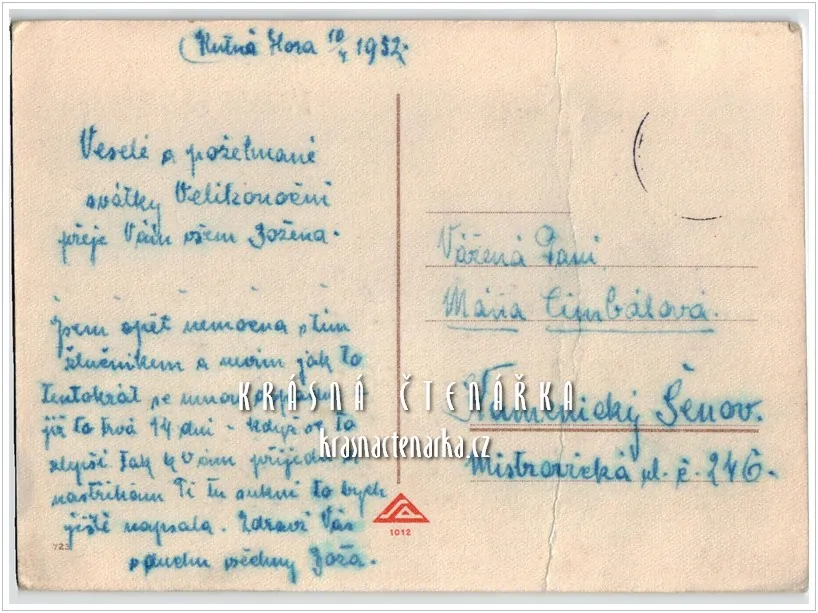 Kutná Hora 10/4 1952.
Veselé a požehnané
svátky Velikonoční
přeje Vám všem Božena.
jsem opět nemocna s tím
žlučníkem a nevím jak to
tentokrát se mnou
již to trvá 14 dní - když se to
zlepší tak k Vám přijedu a
nastřihám Ti tu sukni to bych
ještě napsala. Zdraví Vás
v duchu všechny Boža.
Vážená Paní
Mária Cimbálová.
Kamenický Šenov.
Mistrovická ul. č. 246.
KRÁSNÁ ČTENÁŘKA
krasnactenarka.cz
1012
723